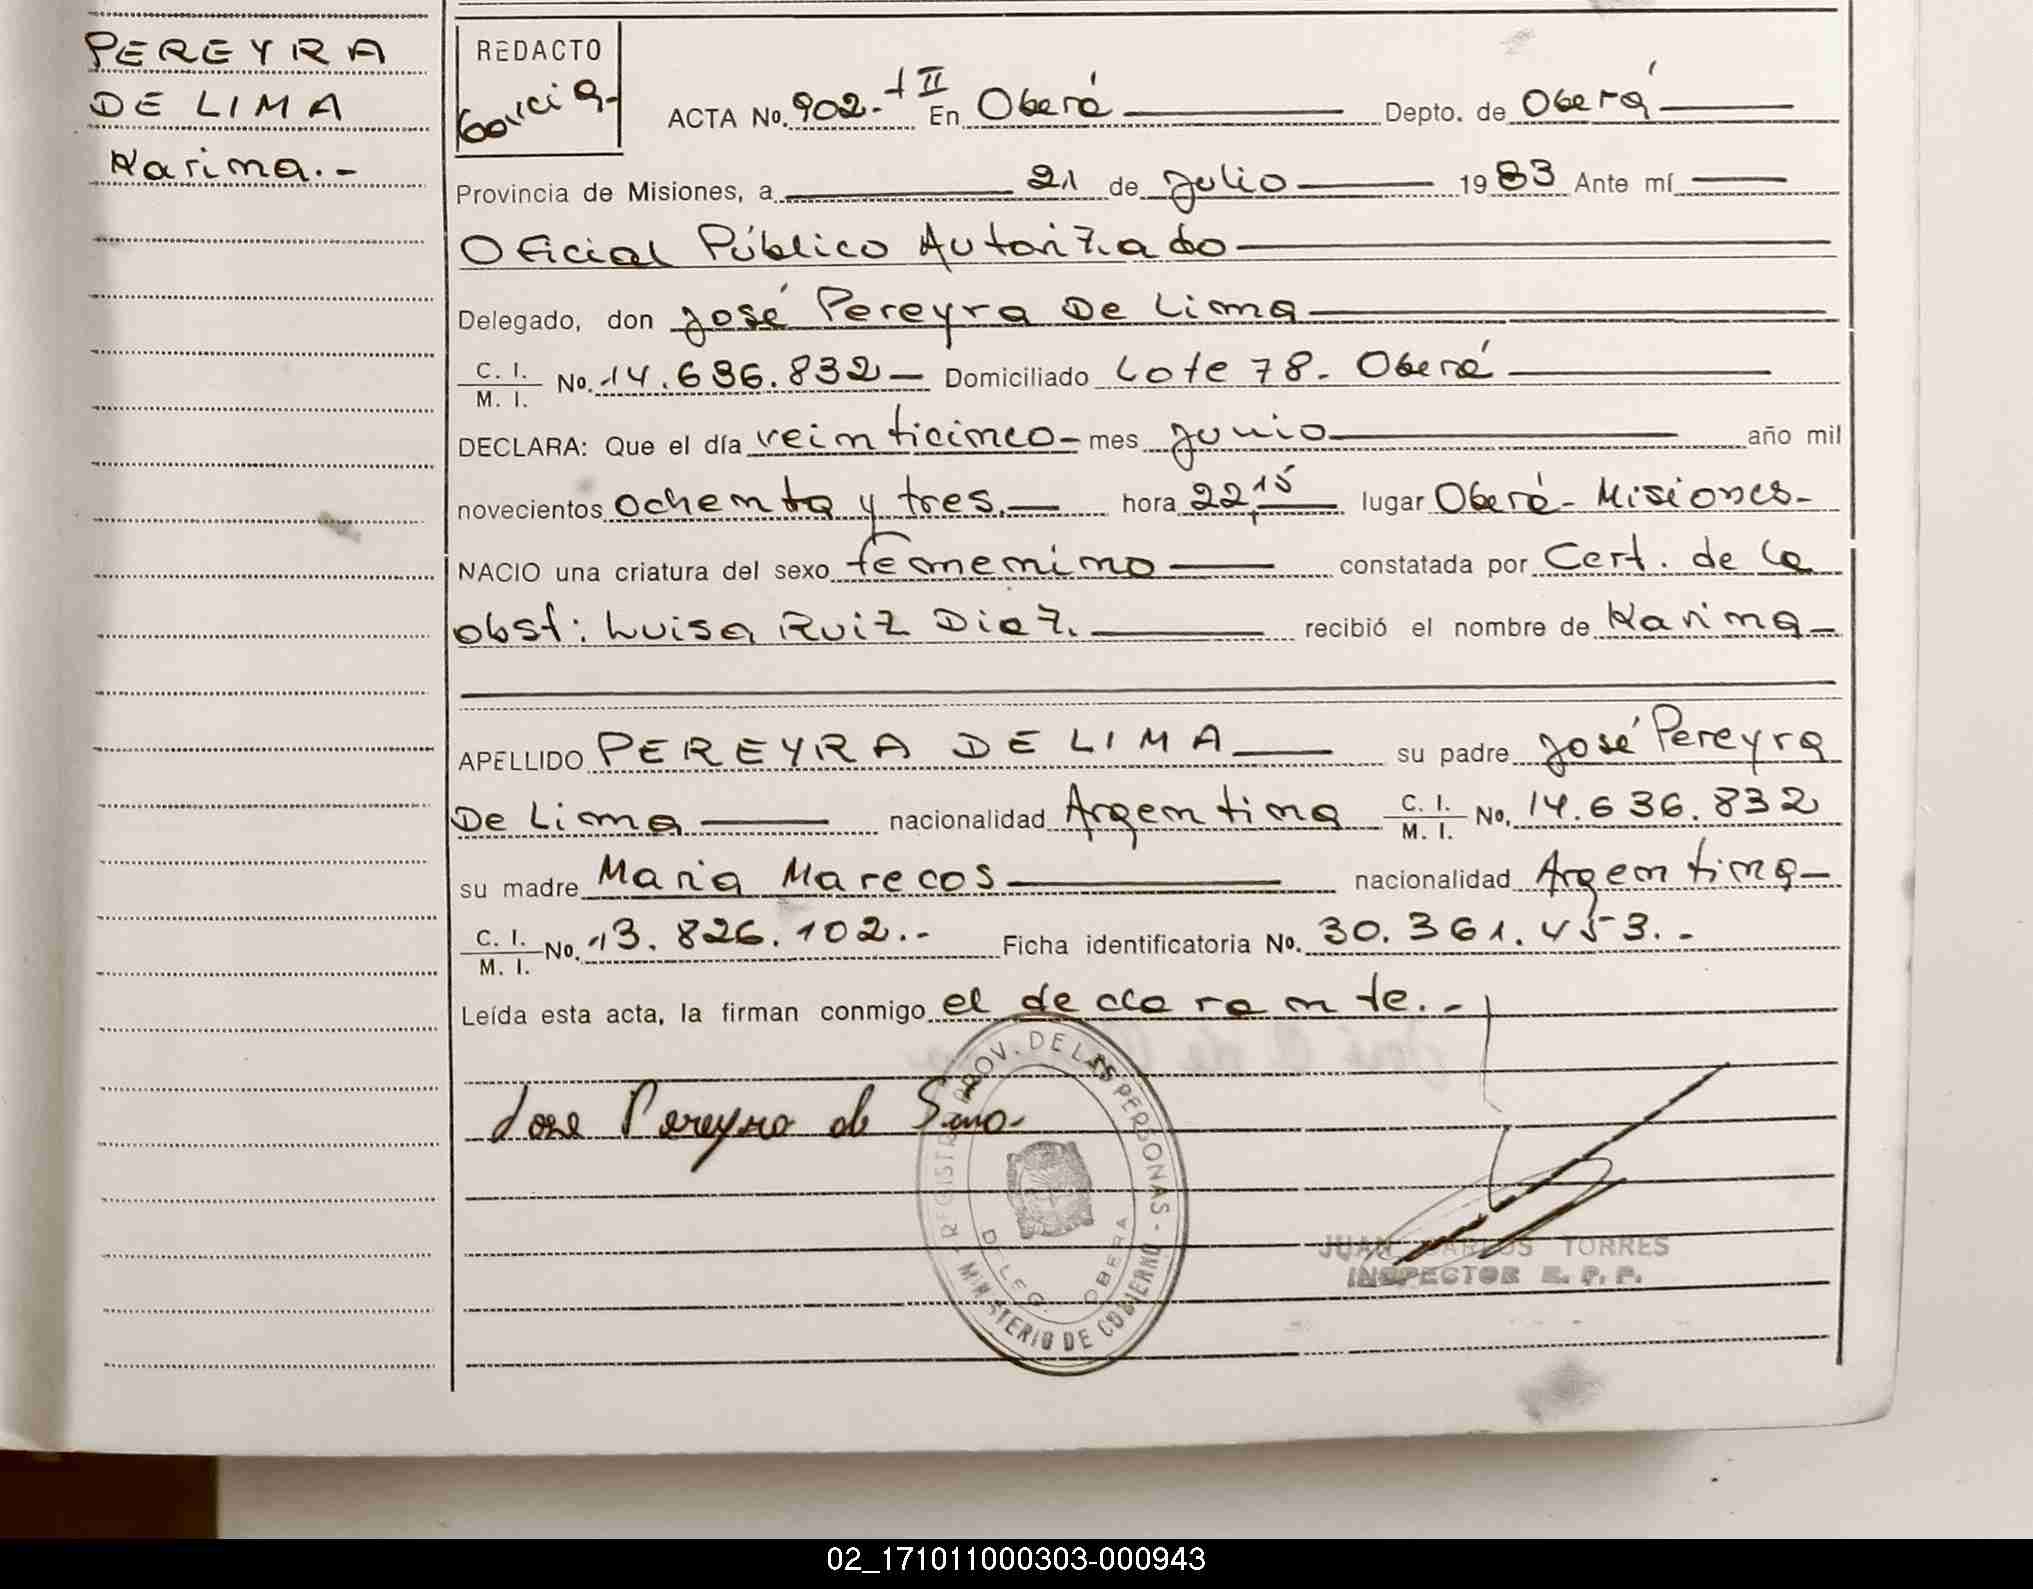 PEREYRA
DE LIMA
Karina.-
REDACTO
García-
ACTA No. 902.- tII En Oberá Depto. de Oberá
Provincia de Misiones, a 21 de Julio 1983 Ante mí
Oficial Público Autorizado
Delegado, don José Pereyra De Lima
C. I. / M. I. No. 14.636.832 Domiciliado Lote 78. Oberá
DECLARA: Que el día veinticinco mes junio año mil
novecientos ochenta y tres. hora 22,15 lugar Oberá-Misiones-
NACIO una criatura del sexo femenino constatada por Cert. de la
obst: Luisa Ruiz Diaz. recibió el nombre de Karina
APELLIDO PEREYRA DE LIMA su padre José Pereyra
De Lima nacionalidad Argentina C. I. / M. I. No. 14.636.832
su madre Maria Marecos nacionalidad Argentina
C. I. / M. I. No. 13.826.102.- Ficha identificatoria No. 30.361.453.-
Leída esta acta, la firman conmigo el declarante.-
Jose Pereyra de Lima
REGISTRO PROV. DE LAS PERSONAS - MINISTERIO DE GOBIERNO
DELEG. OBERA
JUAN CARLOS TORRES
INSPECTOR R. P. P.
02_171011000303-000943